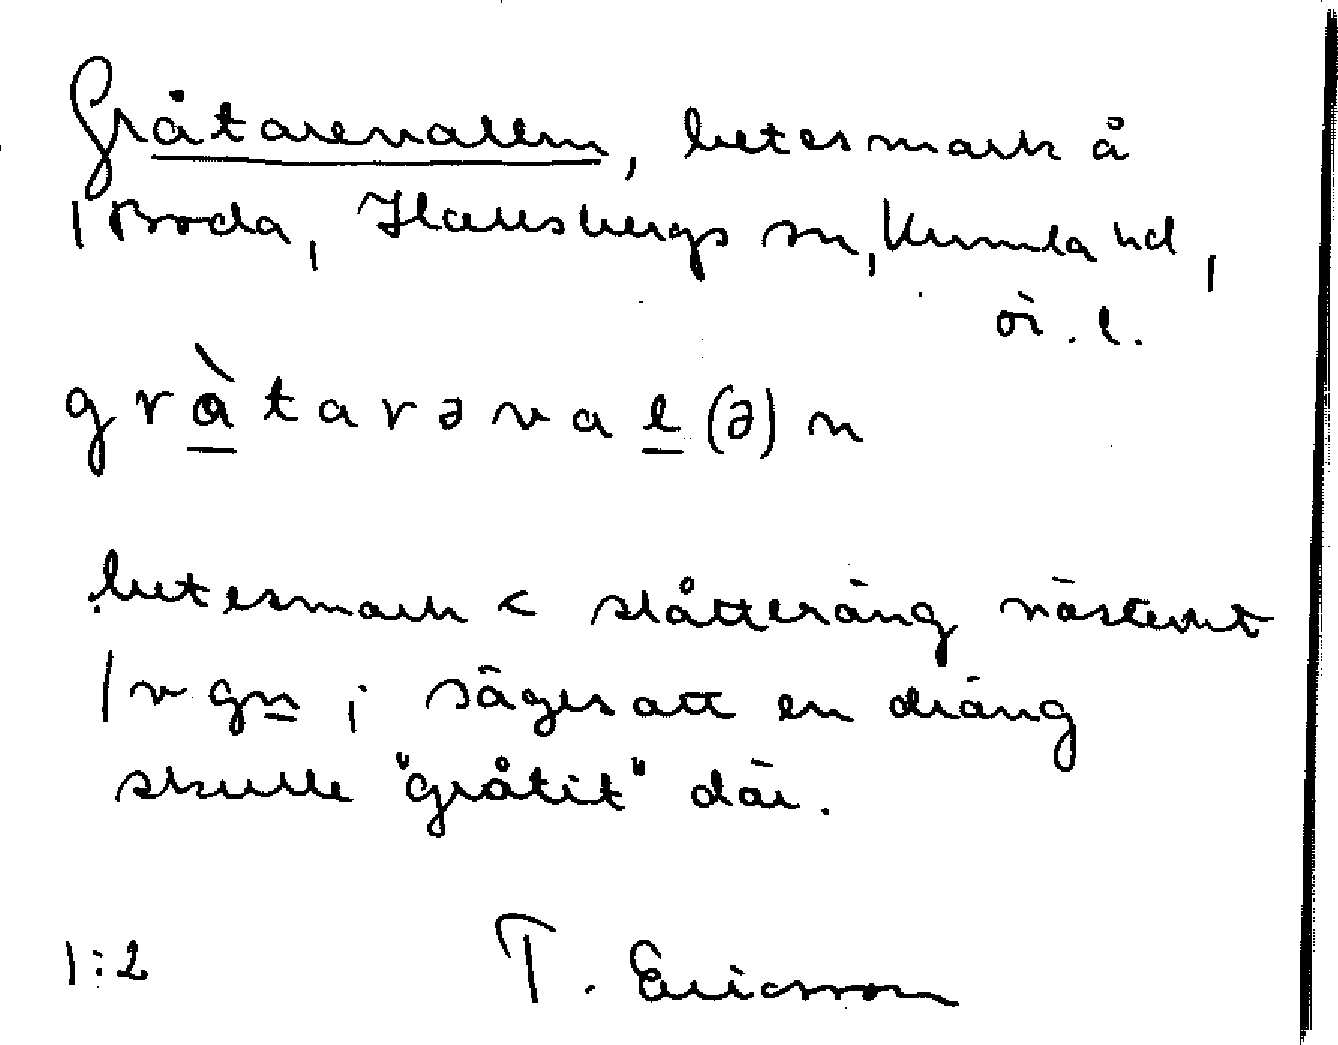 Gråtarevallen, betesmark å
1 Broda, Hallsbergs sn, Kumla hd,
ör. l.
g r à t a r ə v a l (ə) n
betesmark < slåtteräng nästevnt
1 v gn ; säges att en dräng
skulle "gråtit" där.
1:2 T. Ericsson